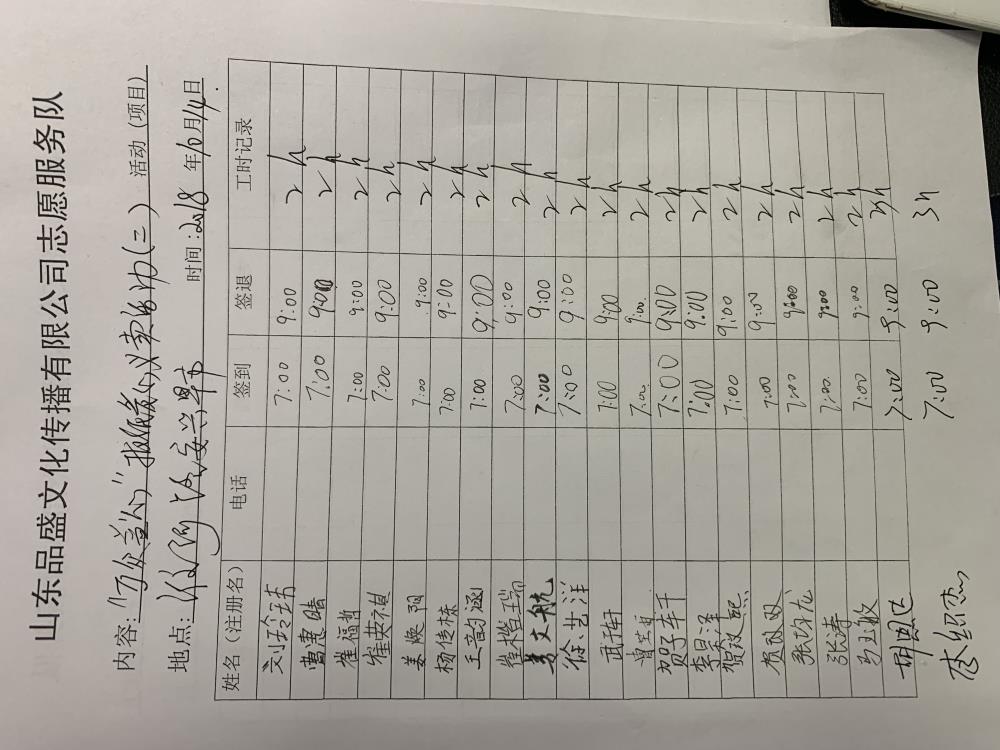 山东品盛文化传播有限公司志愿服务队
内容:"万众益心"报纸义卖活动(二) 活动(项目)
地点: 时间:2018年10月14日
姓名(注册名) 电话 签到 签退 工时记录
刘玲玮 7:00 9:00 2h
曹惠晴 7:00 9:00 2h
崔福哲 7:00 9:00 2h
崔英祺 7:00 9:00 2h
姜焕阳 7:00 9:00 2h
杨传栋 7:00 9:00 2h
王韵涵 7:00 9:00 2h
崔橙瑞 7:00 9:00 2h
姜文航 7:00 9:00 2h
徐艺洋 7:00 9:00 2h
7:00 9:00 2h
7:00 9:00 2h
贺子千 7:00 9:00 2h
李昱泽 7:00 9:00 2h
贺政熙 7:00 9:00 2h
贺双双 7:00 9:00 2h
张均龙 7:00 9:00 2h
张涛 7:00 9:00 2h
马玉姣 7:00 9:00 2h
7:00 9:00 3h
7:00 9:00 3h